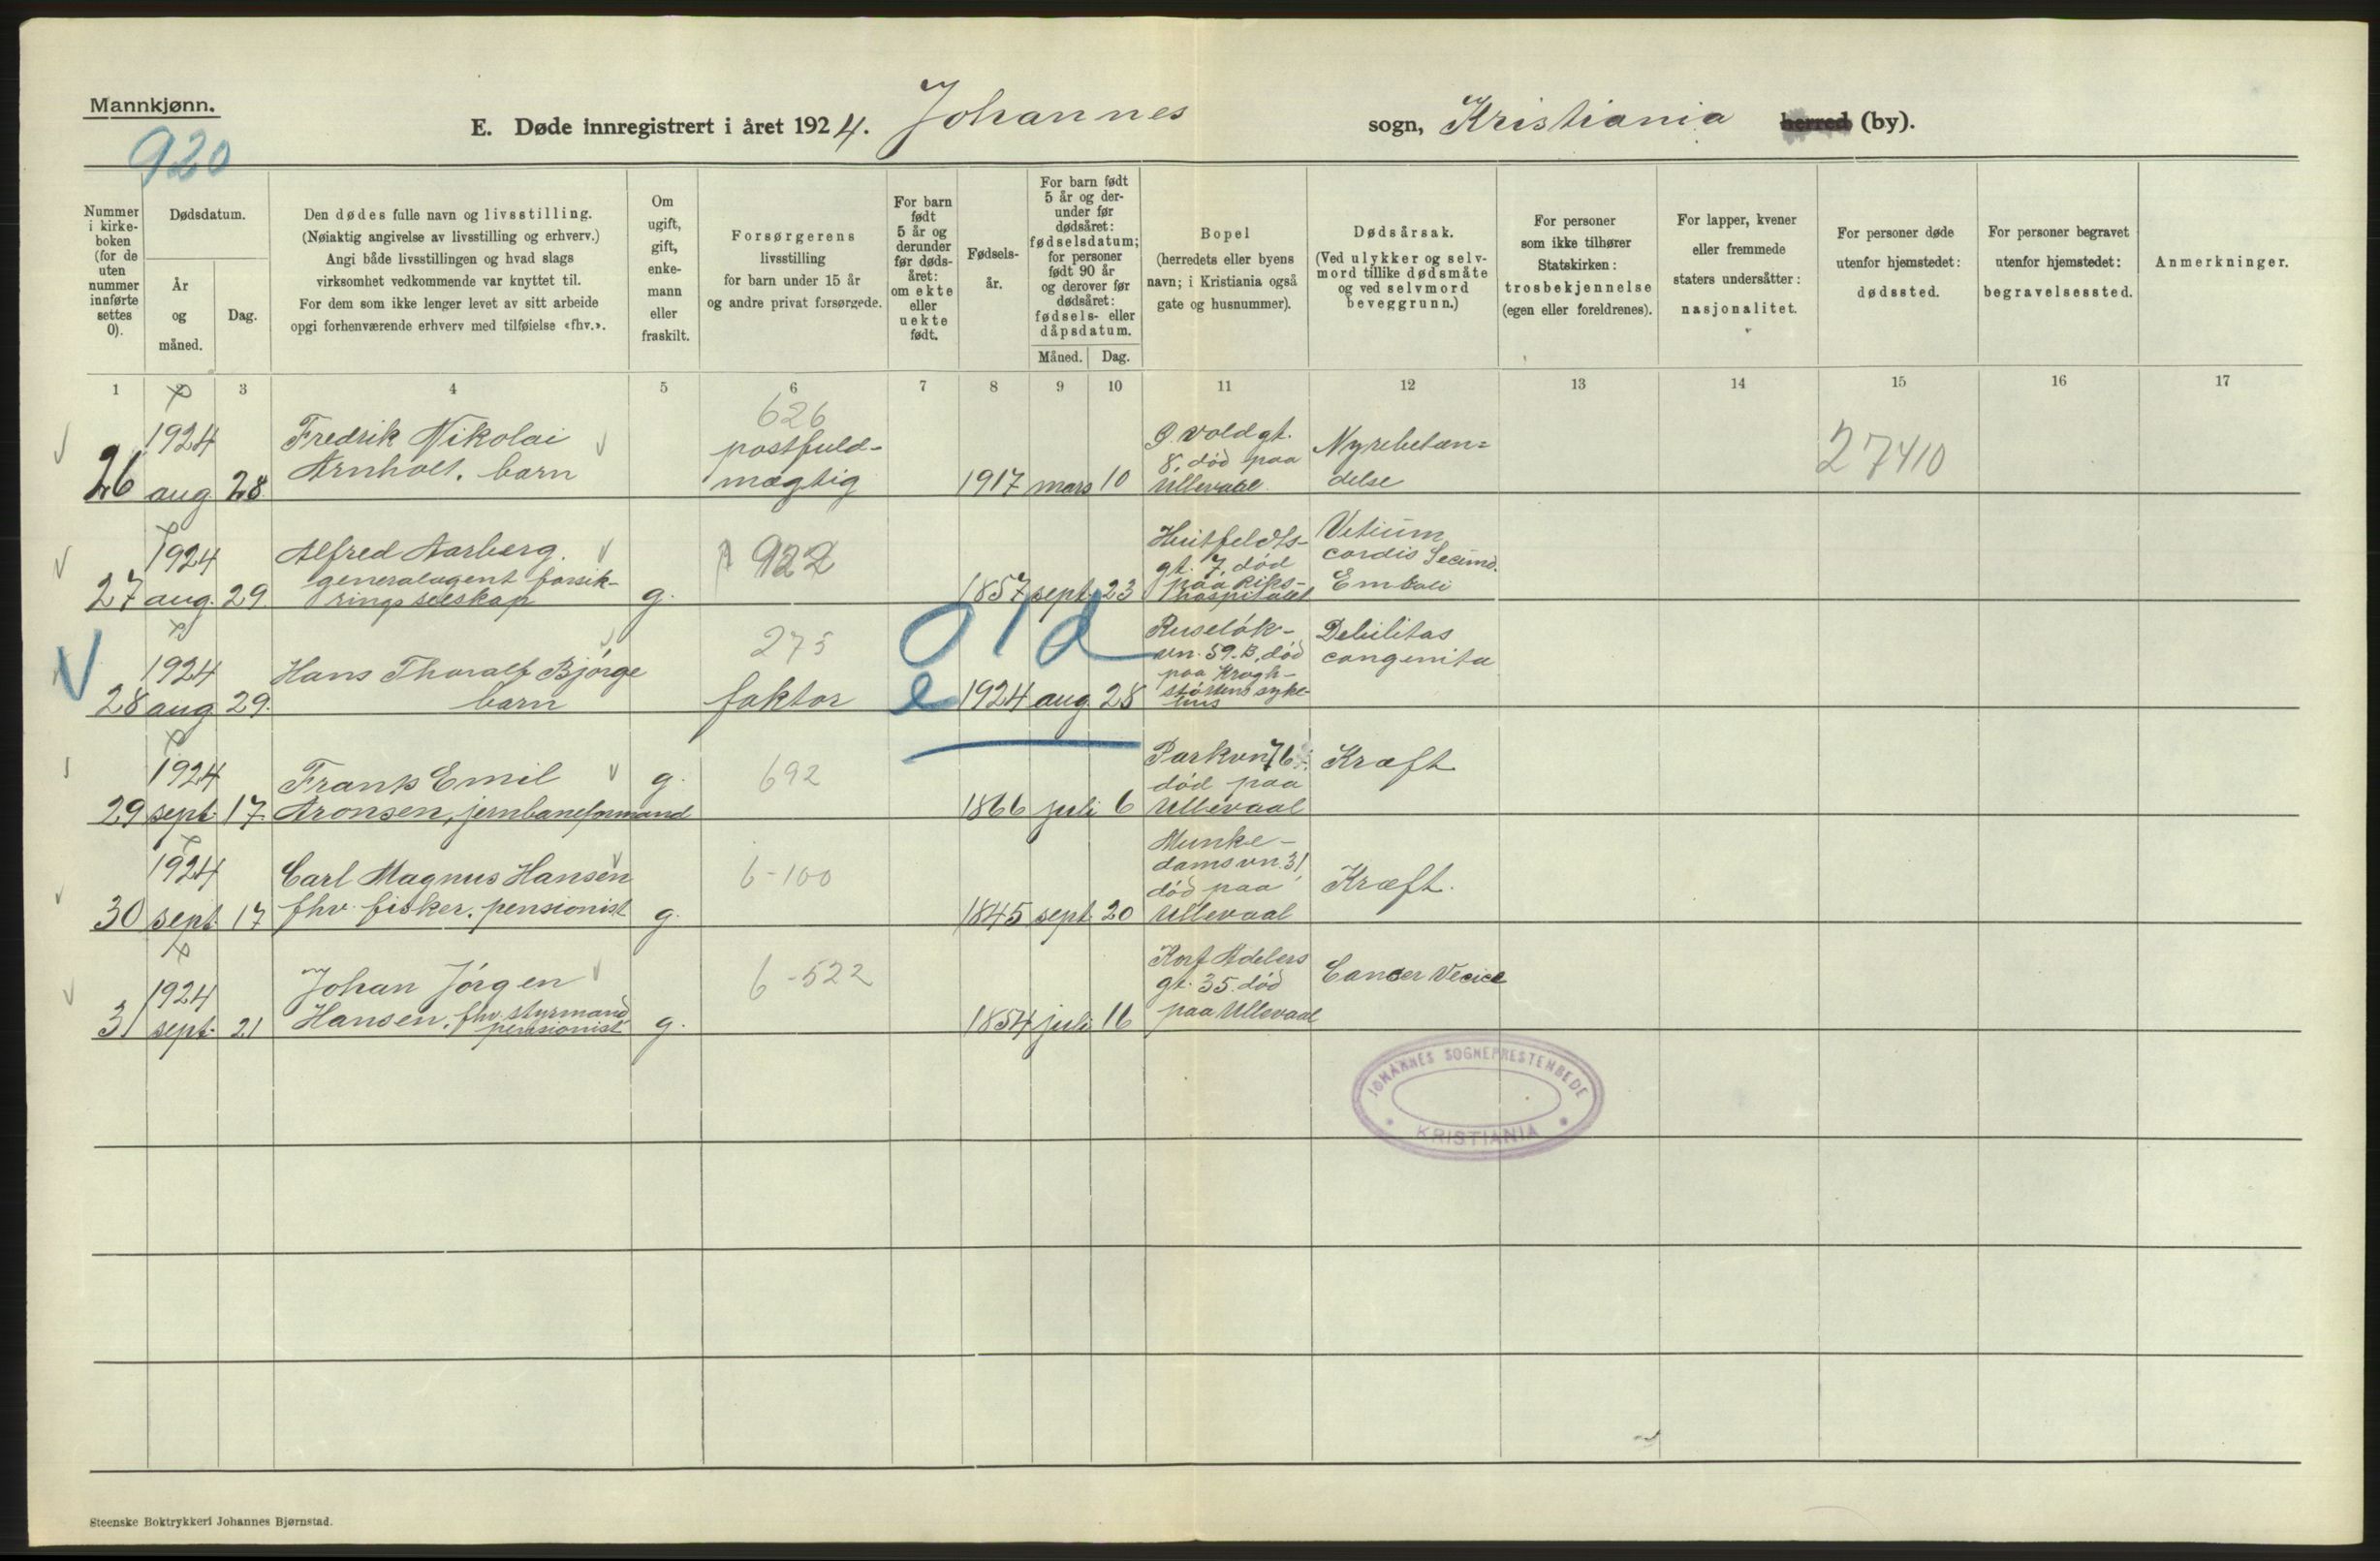 Mannkjønn.
920
E. Døde innregistrert i året 1924. Johannes sogn, Kristiania herred (by).
Nummer
i kirke-
boken
(for de
uten
nummer
innførte
settes
0).
Dødsdatum.
År
og
måned.
Dag.
Den dødes fulle navn og livsstilling.
(Nøiaktig angivelse av livsstilling og erhverv.)
Angi både livsstillingen og hvad slags
virksomhet vedkommende var knyttet til.
For dem som ikke lenger levet av sitt arbeide
opgi forhenværende erhverv med tilføielse «fhv.».
Om
ugift,
gift,
enke-
mann
eller
fraskilt.
Forsørgerens
livsstilling
for barn under 15 år
og andre privat forsørgede.
For barn
født
5 år og
derunder
før døds-
året:
om ekte
eller
uekte
født.
Fødsels-
år.
For barn født
5 år og der-
under før
dødsåret:
fødselsdatum;
for personer
født 90 år
og derover før
dødsåret:
fødsels- eller
dåpsdatum.
Måned.
Dag.
Bopel
(herredets eller byens
navn; i Kristiania også
gate og husnummer).
Dødsårsak.
(Ved ulykker og selv-
mord tillike dødsmåte
og ved selvmord
beveggrunn.)
For personer
som ikke tilhører
Statskirken:
trosbekjennelse
(egen eller foreldrenes).
For lapper, kvener
eller fremmede
staters undersåtter:
nasjonalitet.
For personer døde
utenfor hjemstedet:
dødssted.
For personer begravet
utenfor hjemstedet:
begravelsessted.
Anmerkninger.
1 2 3 4 5 6 7 8 9 10 11 12 13 14 15 16 17
26
1924
aug 28
Fredrik Nikolai
Arnholt. barn
626
postfuld-
mægtig
1917 mars 10
Ø. Voldgt.
8, død paa
Ullevaal
Nyrebetæn=
delse
27410
27
1924
aug. 29
Alfred Aarberg.
generalagent forsik-
ringsselskap
g.
922
1857 sept. 23
Huitfeldts-
gt. 7, død
paa Riks-
hospitalet
Vitium
cordis Secund.
Emboli
28
1924
aug 29.
Hans Thoralf Bjørge
barn
275
faktor
old
e
1924 aug. 28
Ruseløk-
vn. 59.B, død
paa Krogh-
støttens syke-
hus
Debilitas
congenita
29
1924
sept. 17.
Frans Emil
Aronsen, jernbaneformand
g.
692
1866 juli 6
Parkvn 76.
død paa
Ullevaal
Kræft
30
1924
sept. 17
Carl Magnus Hansen
fhv. fisker. pensionist
g.
6-100
1845 sept. 20
Munke-
damsvn. 31,
død paa
Ullevaal
Kræft.
31
1924
sept. 21
Johan Jørgen
Hansen. fhv. styrmand
pensionist
g.
6-522
1854 juli 16
Kort Adelers
gt. 35. død
paa Ullevaal
Cancer Vecice
JOHANNES SOGNEPRESTEMBEDE
KRISTIANIA
Steenske Boktrykkeri Johannes Bjørnstad.